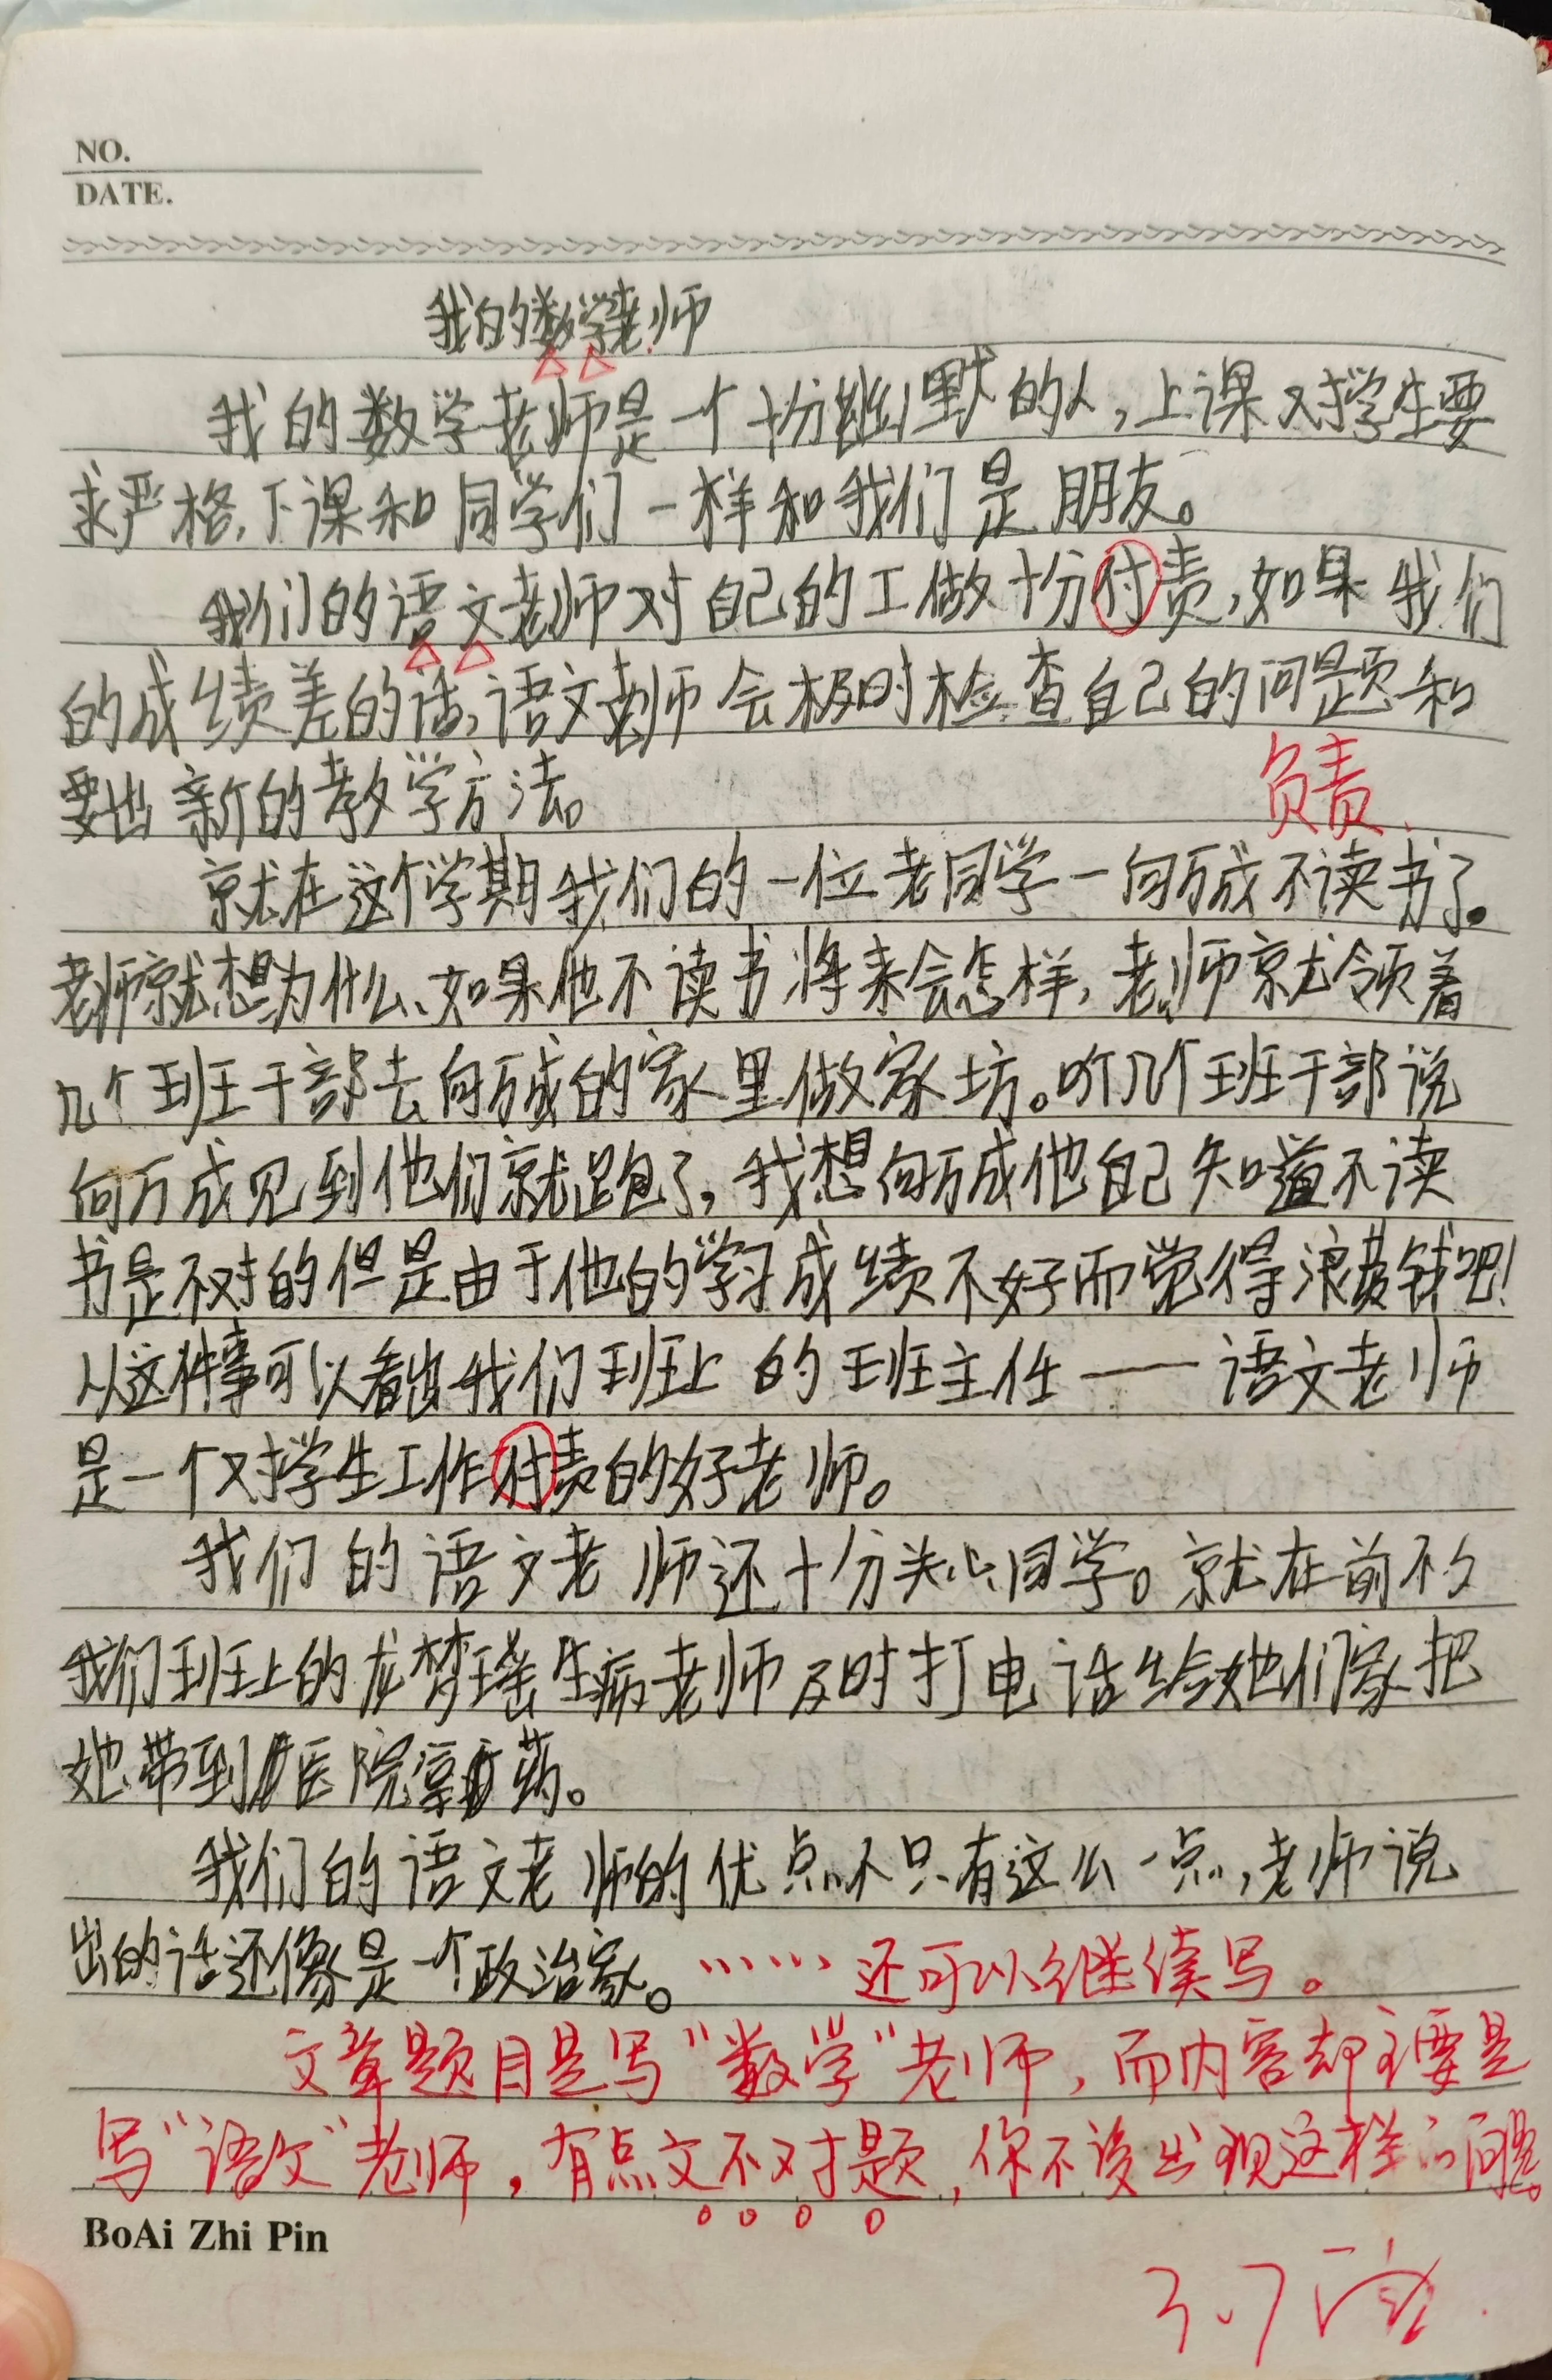 NO.
DATE.
我的数学老师
我的数学老师是一个十分幽默的人，上课对学生要
求严格，下课和同学们一样和我们是朋友。
我们的语文老师对自己的工做十分付责，如果我们
的成绩差的话，语文老师会极时检查自己的问题和
要出新的教学方法。
负责
就在这个学期我们的一位老同学一向万成不读书了。
老师就想为什么、如果他不读书将来会怎样，老师就领着
几个班干部去向万成的家里做家坊。听几个班干部说
向万成见到他们就跑了，我想向万成他自己知道不读
书是不对的但是由于他的学习成绩不好而觉得浪费钱吧！
从这件事可以看出我们班上的班主任——语文老师
是一个对学生工作付责的好老师。
我们的语文老师还十分关心同学。就在前不久
我们班上的龙梦瑶生病老师及时打电话给她们家把
她带到医院拿药。
我们的语文老师的优点不只有这么一点，老师说
出的话还像是一个政治家。……还可以继续写。
文章题目是写“数学”老师，而内容却主要是
写“语文”老师，有点文不对题，你不该出现这样的问题。
BoAi Zhi Pin
3.7